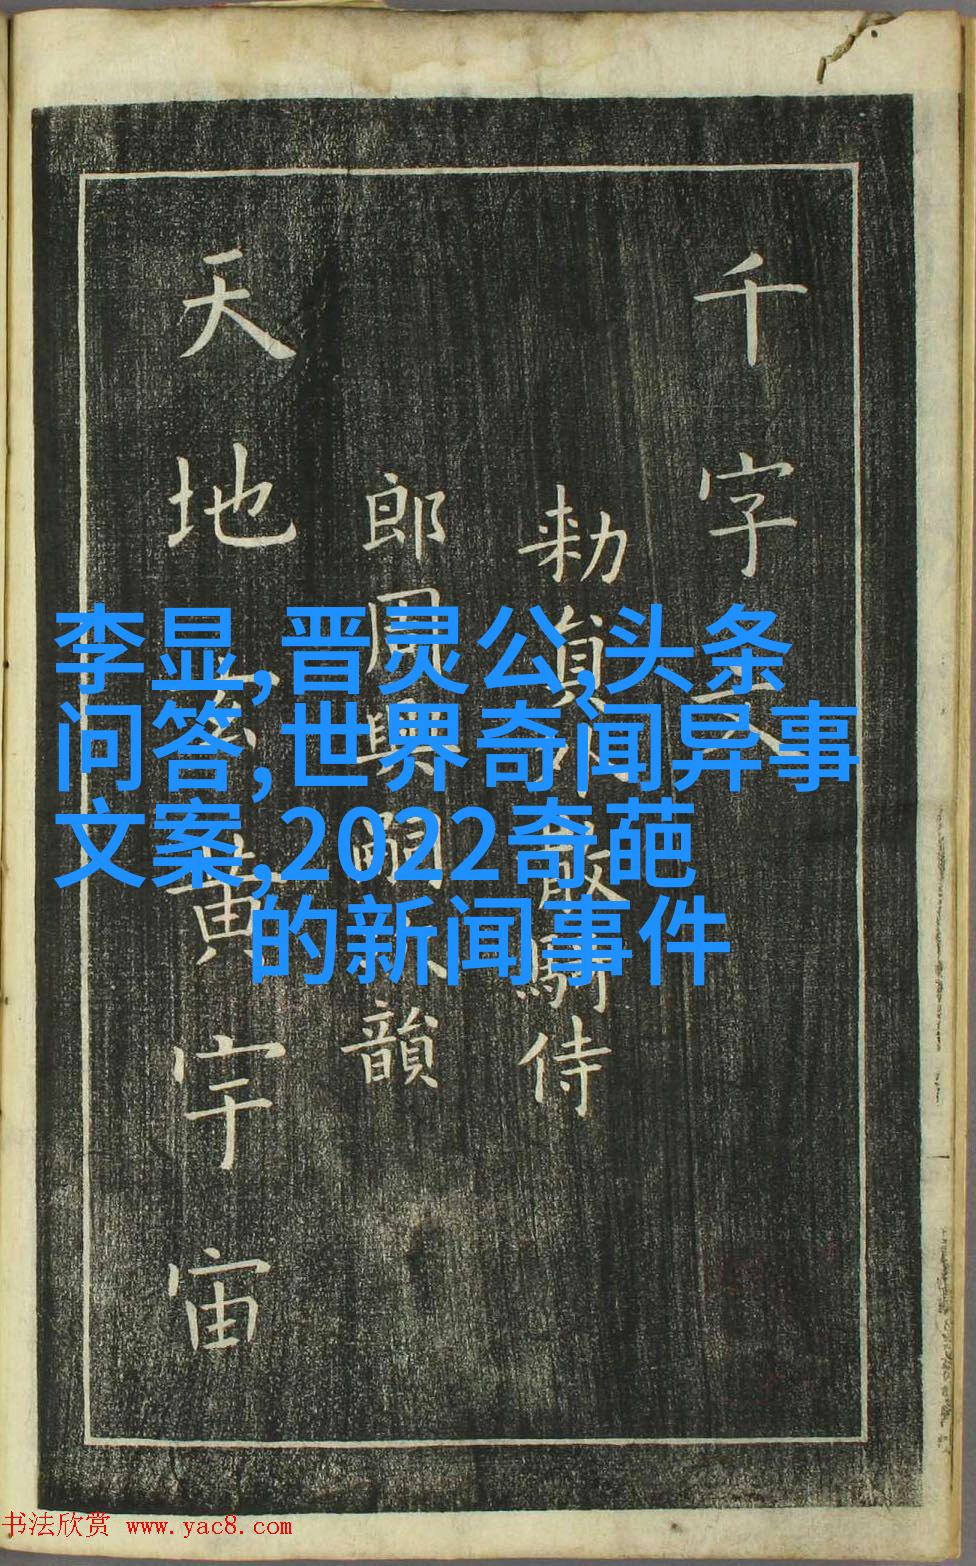 千字文
勅員外散騎侍
郎周興嗣次韻
天地玄黄宇宙
李显,晋灵公,头条
问答,世界奇闻异事
文案,2022奇葩
的新闻事件
书法欣赏 www.yac8.com